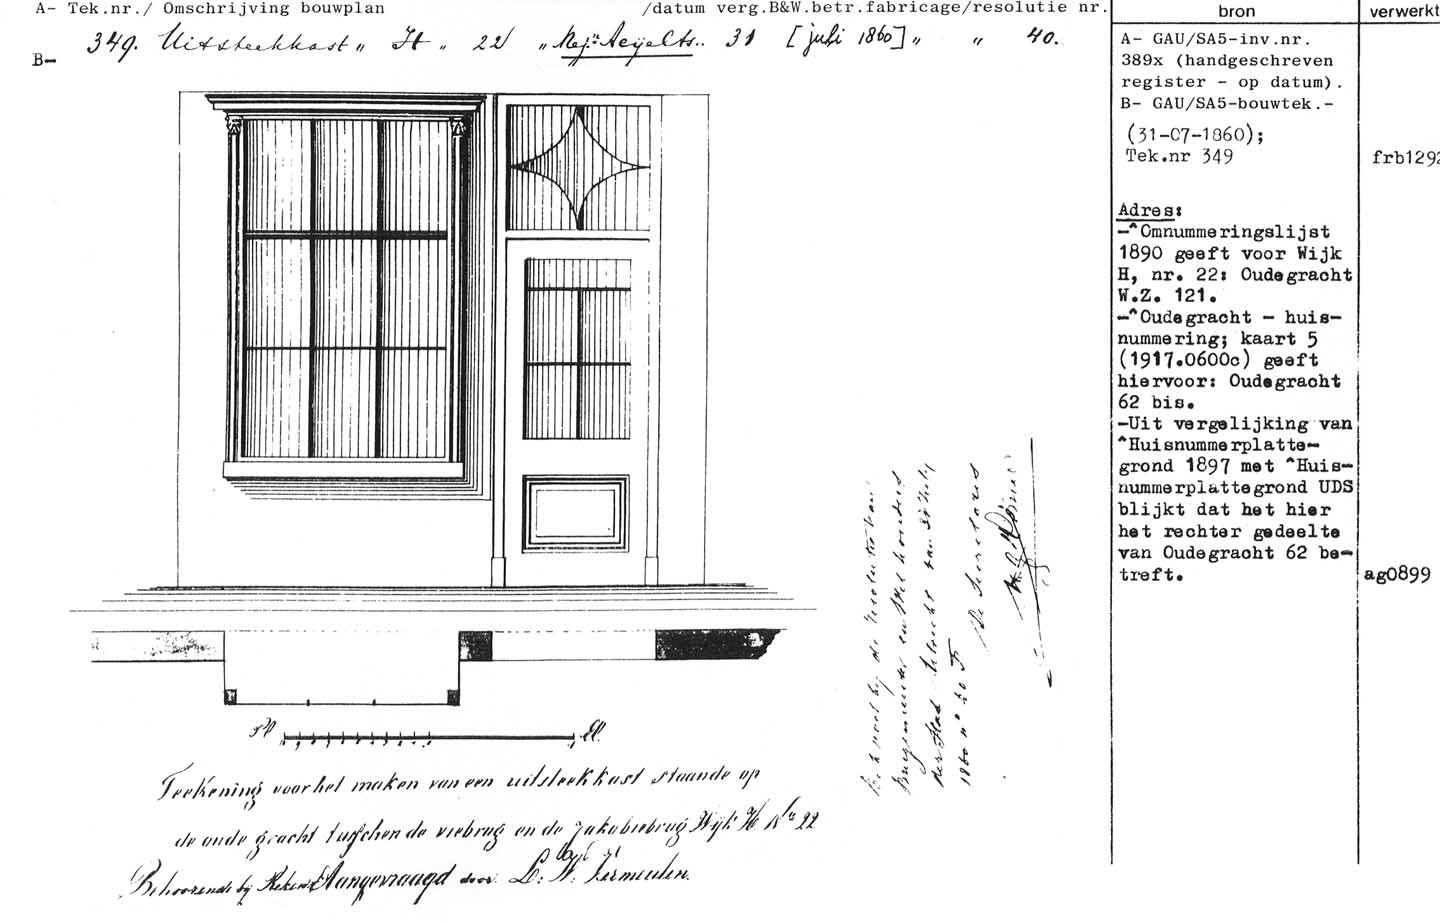 A- Tek.nr./ Omschrijving bouwplan /datum verg.B&W.betr.fabricage/resolutie nr.
bron
verwerkt
349. Uitsteekkast „ H „ 22 „ 31 [juli 1860] „ „ 40.
B-
A- GAU/SA5-inv.nr.
389x (handgeschreven
register - op datum).
B- GAU/SA5-bouwtek.-
(31-07-1860);
Tek.nr 349
frb1292
Adres:
-^Omnummeringslijst
1890 geeft voor Wijk
H, nr. 22: Oudegracht
W.Z. 121.
-^Oudegracht - huis-
nummering; kaart 5
(1917.0600c) geeft
hiervoor: Oudegracht
62 bis.
-Uit vergelijking van
^Huisnummerplatte-
grond 1897 met ^Huis-
nummerplattegrond UDS
blijkt dat het hier
het rechter gedeelte
van Oudegracht 62 be-
treft.
ag0899
Behoort bij de resolutie van
Burgemeester en Wethouders
der Stad Utrecht van 31 July
1860 no 40 F
De Secretaris
El.
Teekening voor het maken van een uitsteekkast staande op
de oude gracht tusschen de viebrug en de Jakobiebrug Wijk H No 22
Behoorende bij Aangevraagd door L: W: Vermeulen.